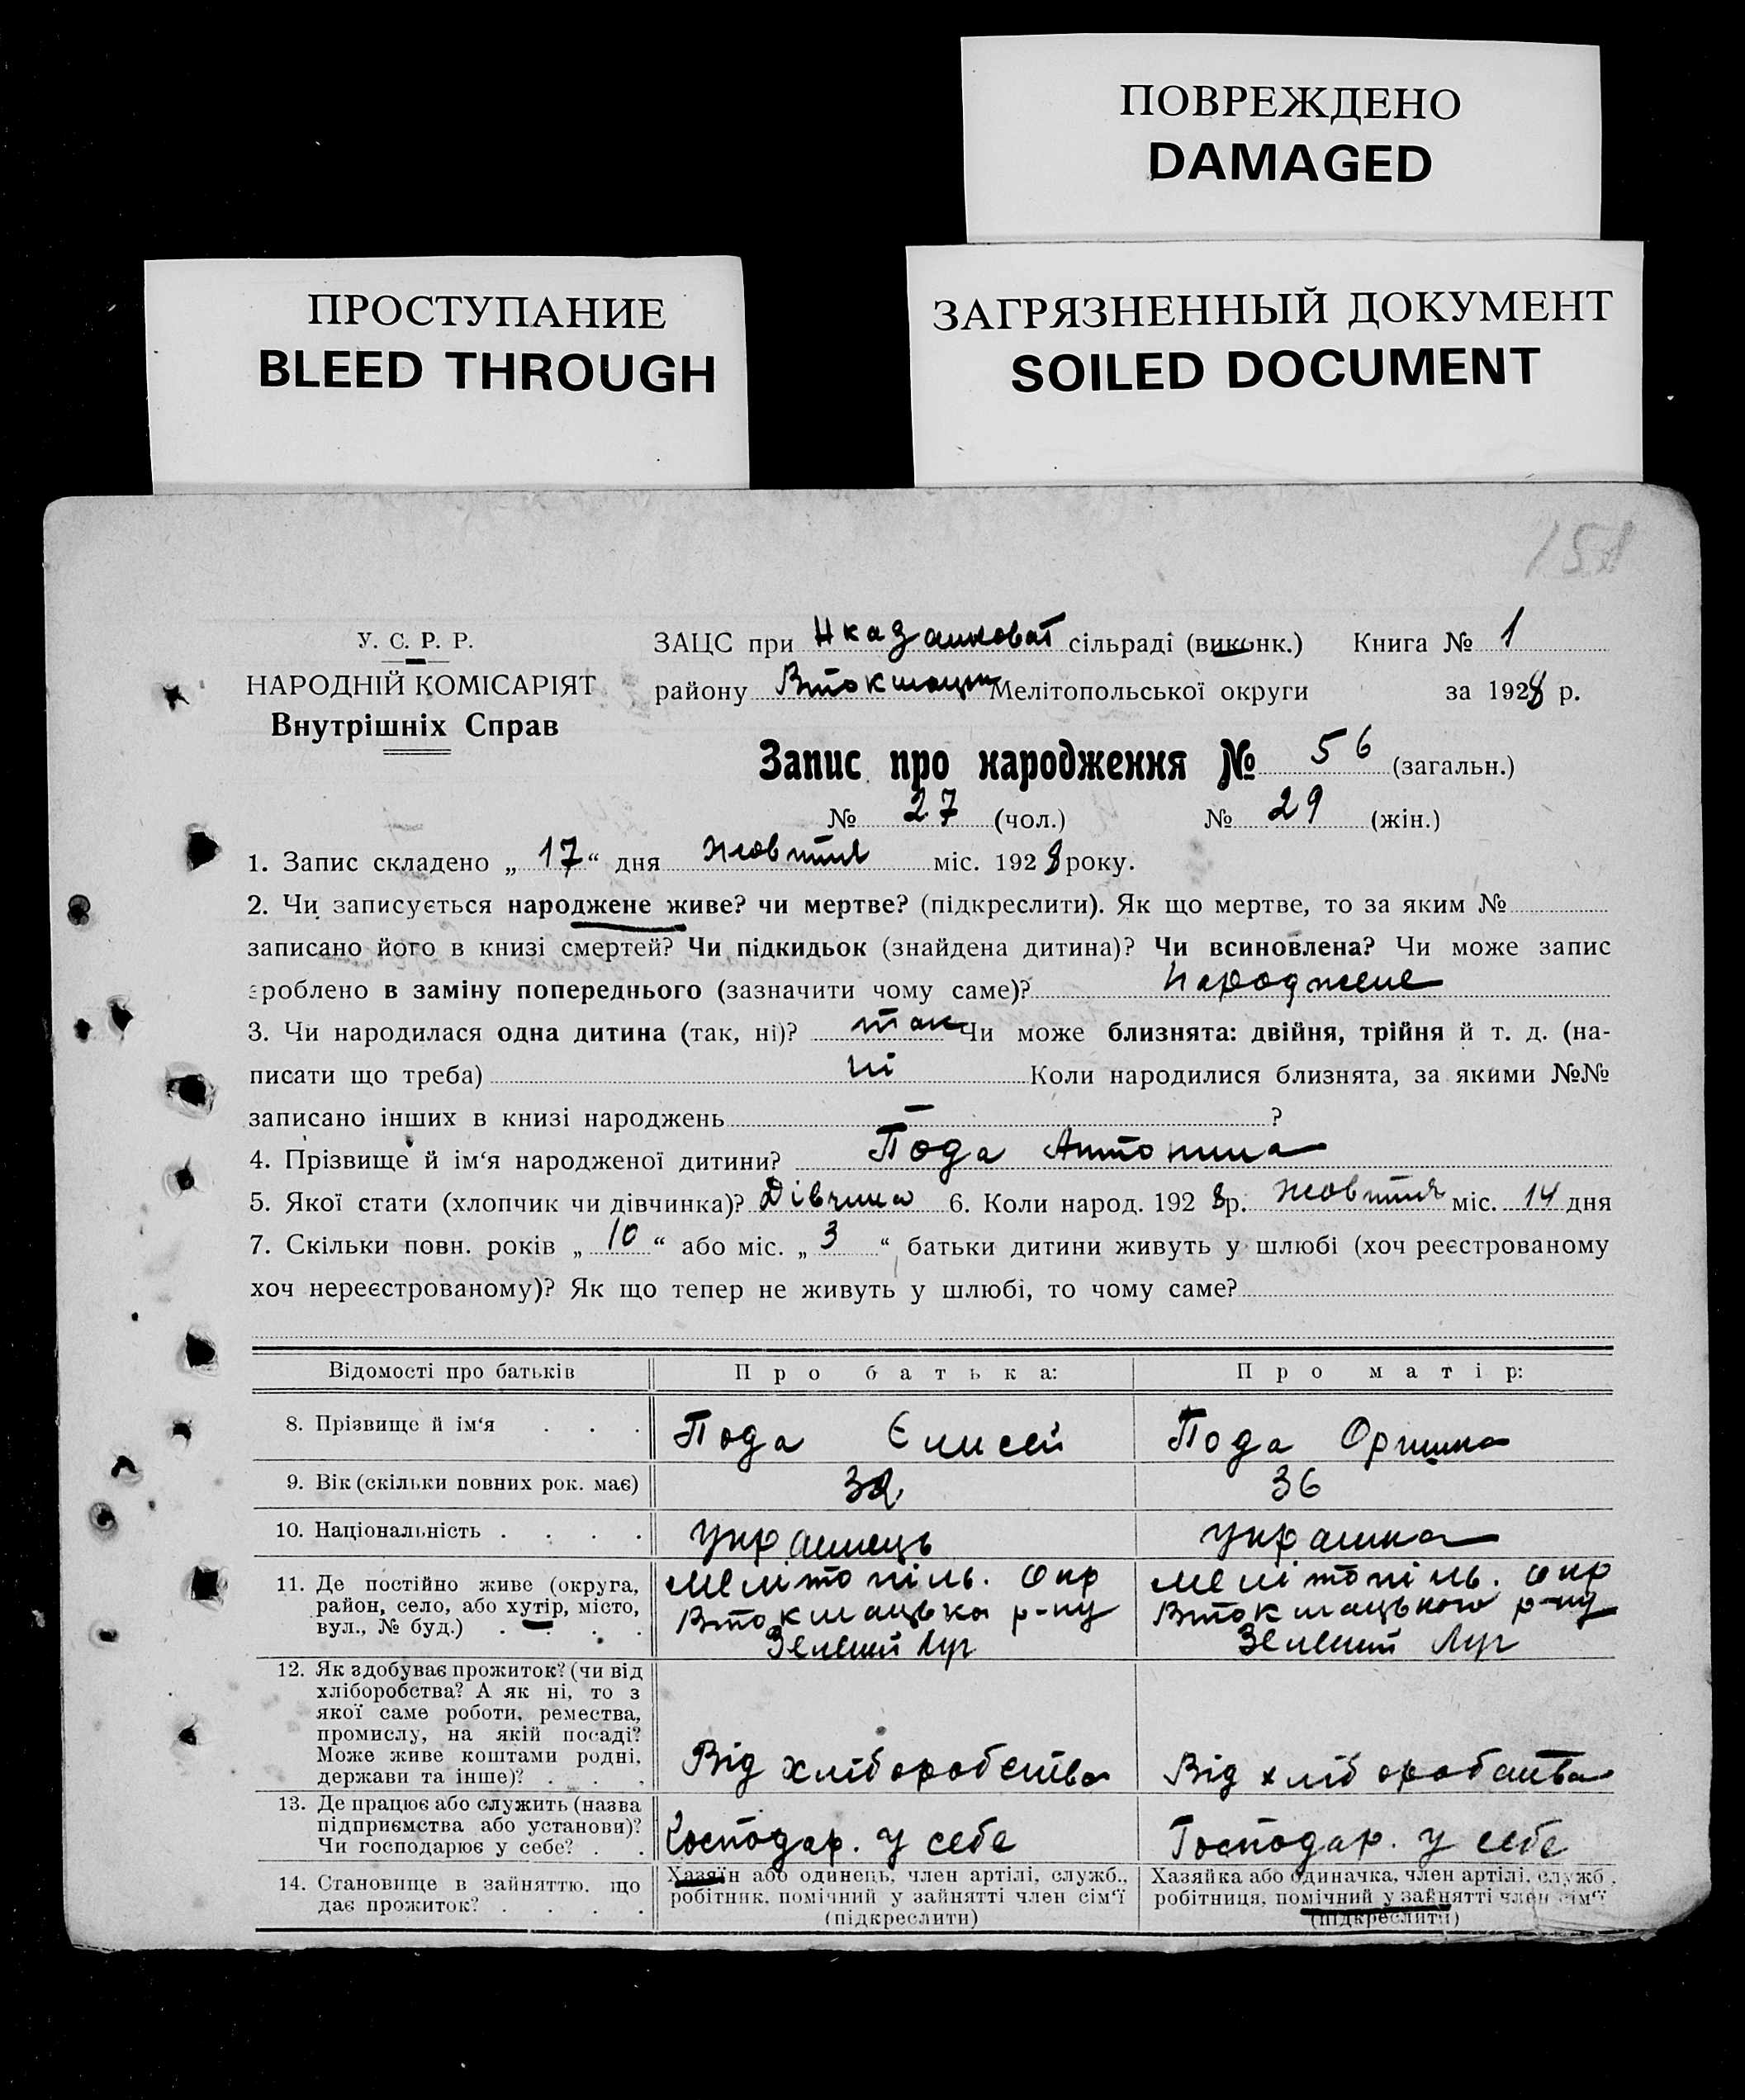 ПОВРЕЖДЕНО
DAMAGED
ПРОСТУПАНИЕ
BLEED THROUGH
ЗАГРЯЗНЕННЫЙ ДОКУМЕНТ
SOILED DOCUMENT
151
У. С. Р. Р.
НАРОДНІЙ КОМІСАРІЯТ
Внутрішніх Справ
ЗАЦС при сільраді (виконк.) Книга № 1
району Втокмацьк Мелітопольської округи за 1928 р.
Запис про народження № 56 (загальн.)
№ 27 (чол.) № 29 (жін.)
1. Запис складено „ 17 “ дня жовтня міс. 1928 року.
2. Чи записується народжене живе? чи мертве? (підкреслити). Як що мертве, то за яким №
записано його в книзі смертей? Чи підкидьок (знайдена дитина)? Чи всиновлена? Чи може запис
зроблено в заміну попереднього (зазначити чому саме)? Народжене
3. Чи народилася одна дитина (так, ні)? так Чи може близнята: двійня, трійня й т. д. (на-
писати що треба) ні Коли народилися близнята, за якими №№
записано інших в книзі народжень — ?
4. Прізвище й ім‘я народженої дитини? Пода Антонина
5. Якої стати (хлопчик чи дівчинка)? Дівчина 6. Коли народ. 1928 р. жовтня міс. 14 дня
7. Скільки повн. років „ 10 “ або міс. „ 3 “ батьки дитини живуть у шлюбі (хоч реєстрованому
хоч нереєстрованому)? Як що тепер не живуть у шлюбі, то чому саме?
Відомості про батьків Про батька: Про матір:
8. Прізвище й ім‘я . . . Пода Єлисей Пода Оришка
9. Вік (скільки повних рок. має) 32 36
10. Національність . . . . Українець Українка
11. Де постійно живе (округа, район, село, або хутір, місто, вул., № буд.) . . . .
Мелітопіль. окр
Втокмацька р-ну
Зелений Луг
Мелітопіль. окр
Втокмацького р-ну
Зелений Луг
12. Як здобуває прожиток? (чи від
хліборобства? А як ні, то з
якої саме роботи, ремества,
промислу, на якій посаді?
Може живе коштами родні,
держави та інше)? . . .
Від хліборобства Від хліборобства
13. Де працює або служить (назва
підприємства або установи)?
Чи господарює у себе? . .
Господар. у себе Господар. у себе
14. Становище в зайняттю, що
дає прожиток? . . . .
Хазяїн або одинець, член артілі, служб.,
робітник, помічний у зайнятті член сім‘ї
(підкреслити)
Хазяйка або одиначка, член артілі, служб.,
робітниця, помічний у зайнятті член сім‘ї
(підкреслити)